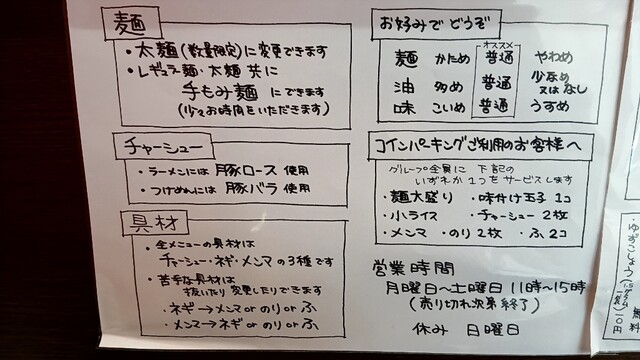 麺
・太麺(数量限定)に変更できます
・レギュラー麺・太麺 共に
手もみ麺 にできます
(少々お時間をいただきます)
チャーシュー
・ラーメンには 豚ロース 使用
・つけめんには 豚バラ 使用
具材
・全メニューの具材は
チャーシュー・ネギ・メンマ の3種です
・苦手な具材は
抜いたり変更したりできます
・ネギ→メンマ or のり or ふ
・メンマ→ネギ or のり or ふ
お好みで どうぞ
オススメ
麺 かため 普通 やわめ
油 多め 普通 少なめ又はなし
味 こいめ 普通 うすめ
コインパーキングご利用のお客様へ
グループ全員に 下記の
いずれか1つをサービスします
・麺大盛り ・味付け玉子 1コ
・小ライス ・チャーシュー 2枚
・メンマ ・のり2枚 ・ふ2コ
営業時間
月曜日〜土曜日 11時〜15時
(売り切れ次第終了)
休み 日曜日
・ゆずこしょう